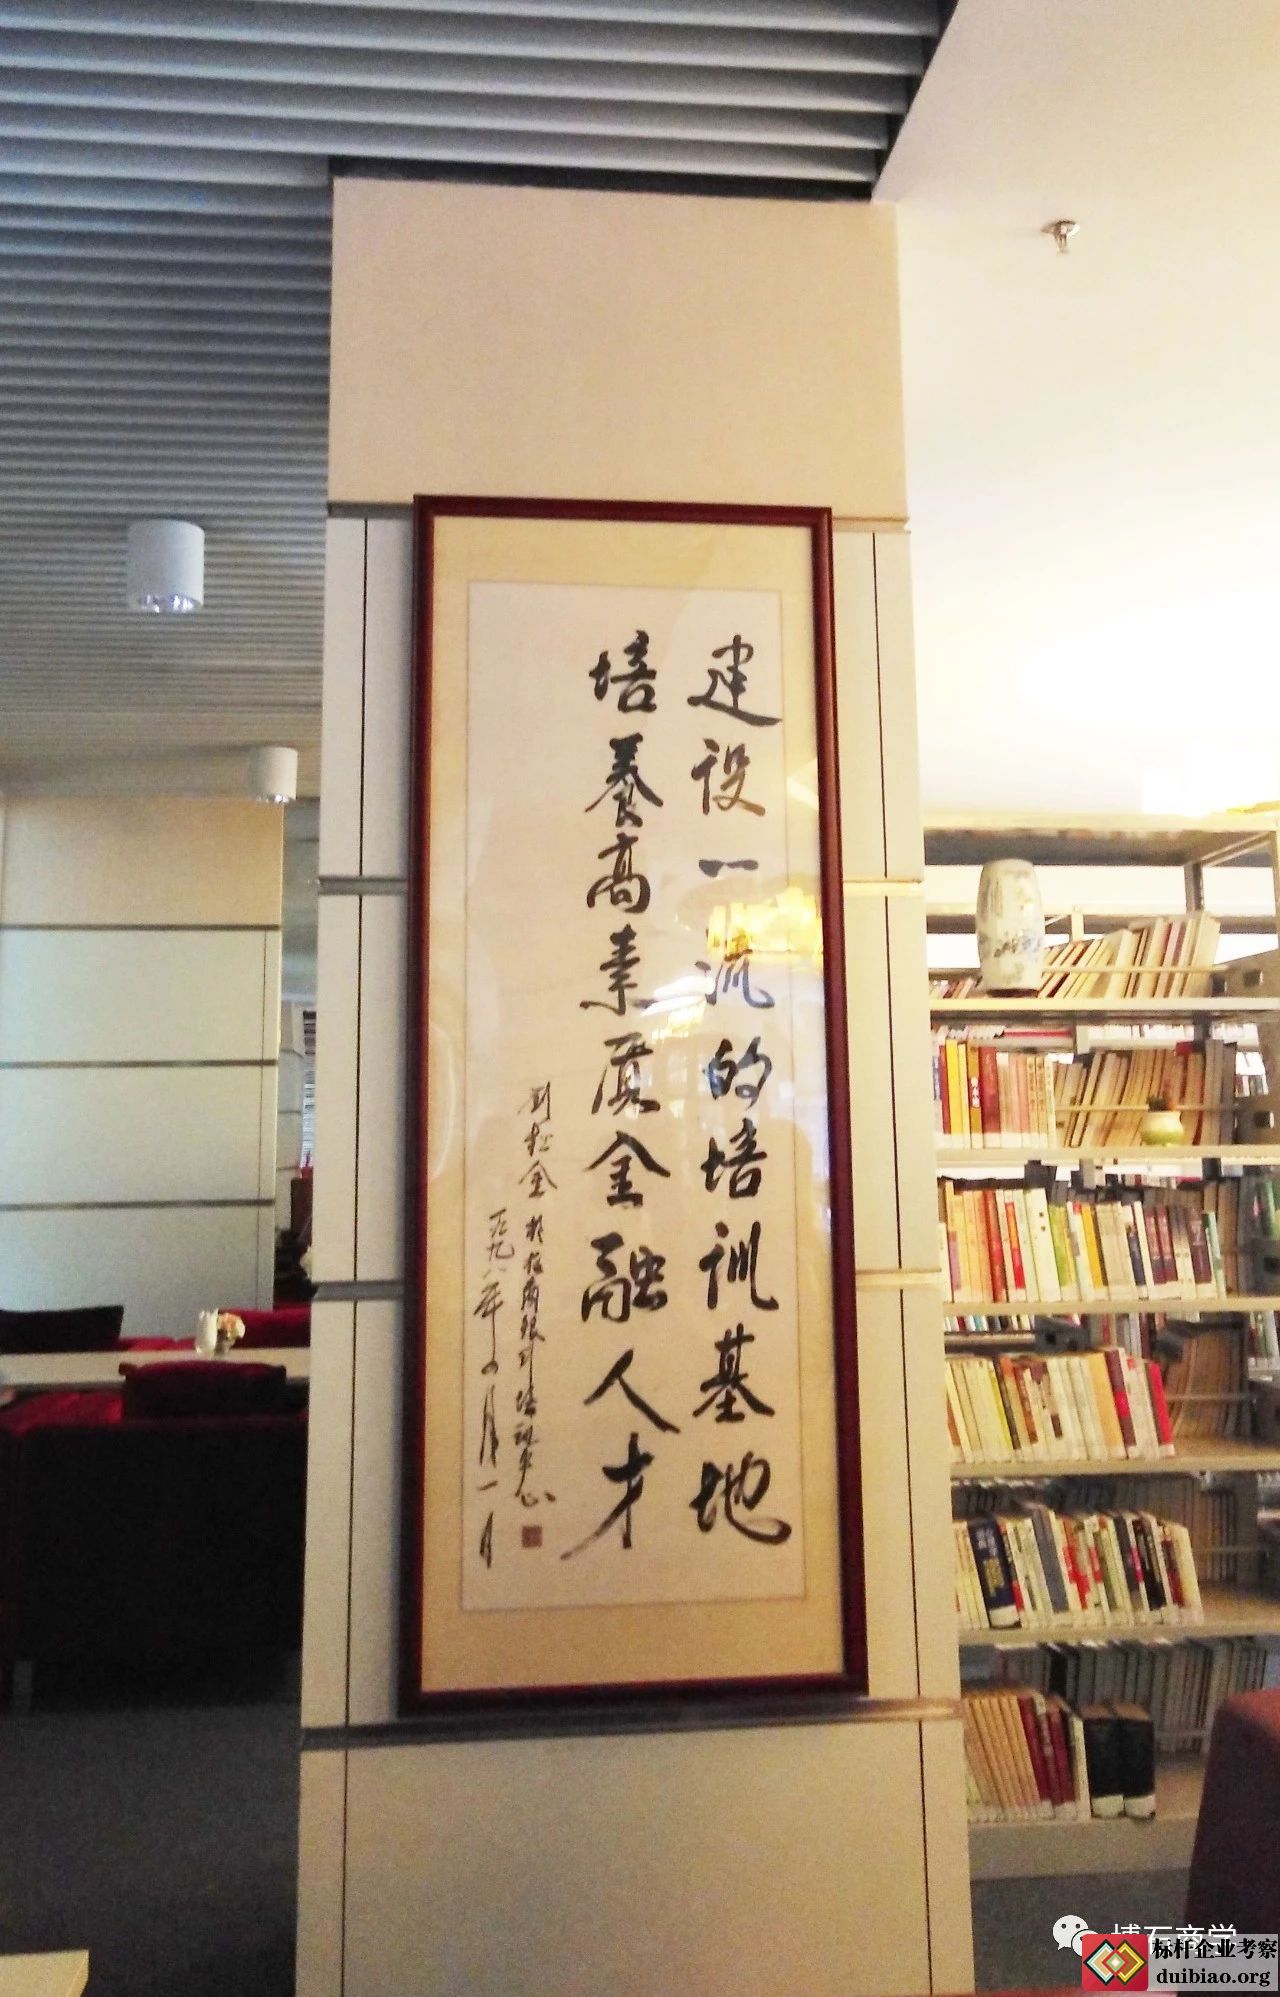 建设一流的培训基地
培養高素质金融人才
刘松金 於招商银行培训中心
一九九八年四月一日
博石商学
标杆企业考察
duibiao.org